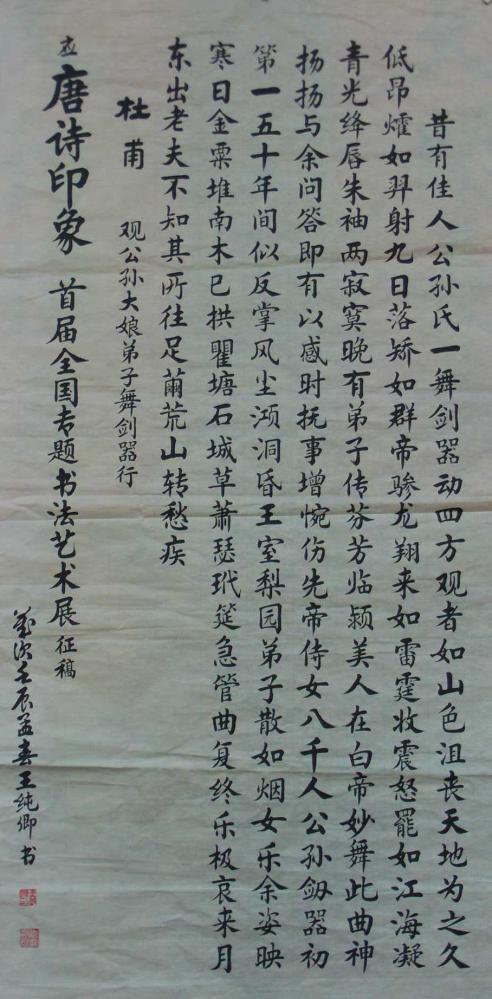 昔有佳人公孙氏一舞剑器动四方观者如山色沮丧天地为之久
低昂㸌如羿射九日落矫如群帝骖龙翔来如雷霆收震怒罢如江海凝
青光绛唇朱袖两寂寞晚有弟子传芬芳临颍美人在白帝妙舞此曲神
扬扬与余问答即有以感时抚事增惋伤先帝侍女八千人公孙剑器初
第一五十年间似反掌风尘澒洞昏王室梨园弟子散如烟女乐余姿映
寒日金粟堆南木已拱瞿塘石城草萧瑟玳筵急管曲复终乐极哀来月
东出老夫不知其所往足茧荒山转愁疾
杜甫 观公孙大娘弟子舞剑器行
应唐诗印象首届全国专题书法艺术展征稿
岁次壬辰孟春王纯卿书